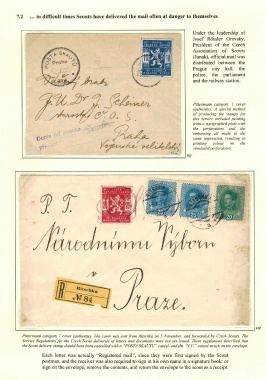 7.2 ... in difficult times Scouts have delivered the mail often at danger to themselves
Under the leadership of
Josef Rössler Orovsky,
President of the Czech
Association of Scouts
(Junak), official mail was
distributed between the
Prague city hall, the
police, the parliament
and the railway station.
Praha
Pittermann category 1 cover
(authentic). A special method
of producing the stamps for
this service included printing
from a typographed plate with
the perforations and the
embossing all made in the
same impression, resulting in
printing colour on the
simulated perforations.
P. T.
Národnímu Výboru
v Praze.
Růžička
№ 84
Pittermann category 1 cover (authentic). This cover was sent from Růžička on 5 November, and forwarded by Czech Scouts. The
Service Regulations for the Czech Scout deliveries of letters and documents were not yet issued. These regulations described that
the Scout delivery stamp should have been cancelled with a "POSTA SKAUTU" cancel, and the "N.V." cancel struck on the envelope.
Each letter was actually "Registered mail", since they were first signed by the Scout
postman, and the receiver was also required to sign in his own name in a signature book; or
sign on the envelope, remove the contents, and return the envelope to the scout as a receipt.